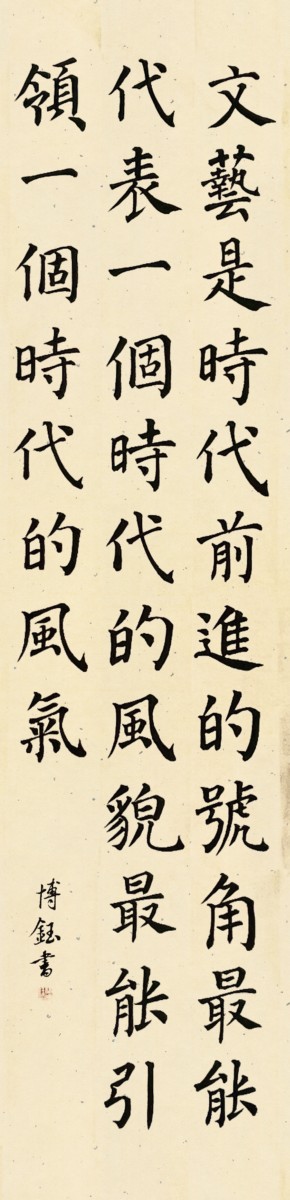 文藝是時代前進的號角最能
代表一個時代的風貌最能引
領一個時代的風氣
博鈺書